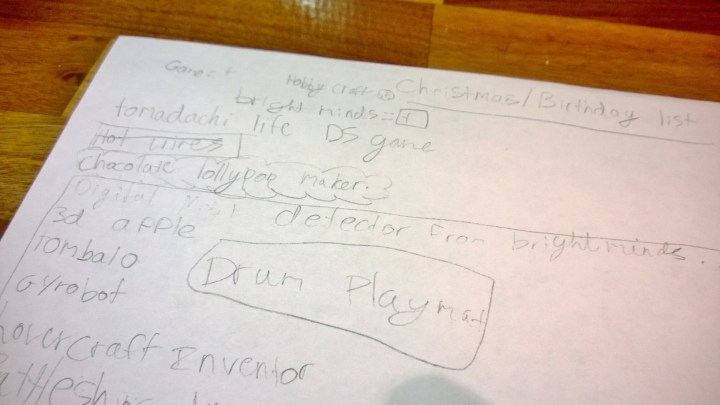 Game = +
Hobby craft =
Christmas/Birthday list
bright minds =
tomadachi life DS game
Hot wires
Chocolate lollypop maker.
Digital detector from brightminds.
3d apple
Tombalo
Gyrobot
Drum Playmat
hovercraft Inventor